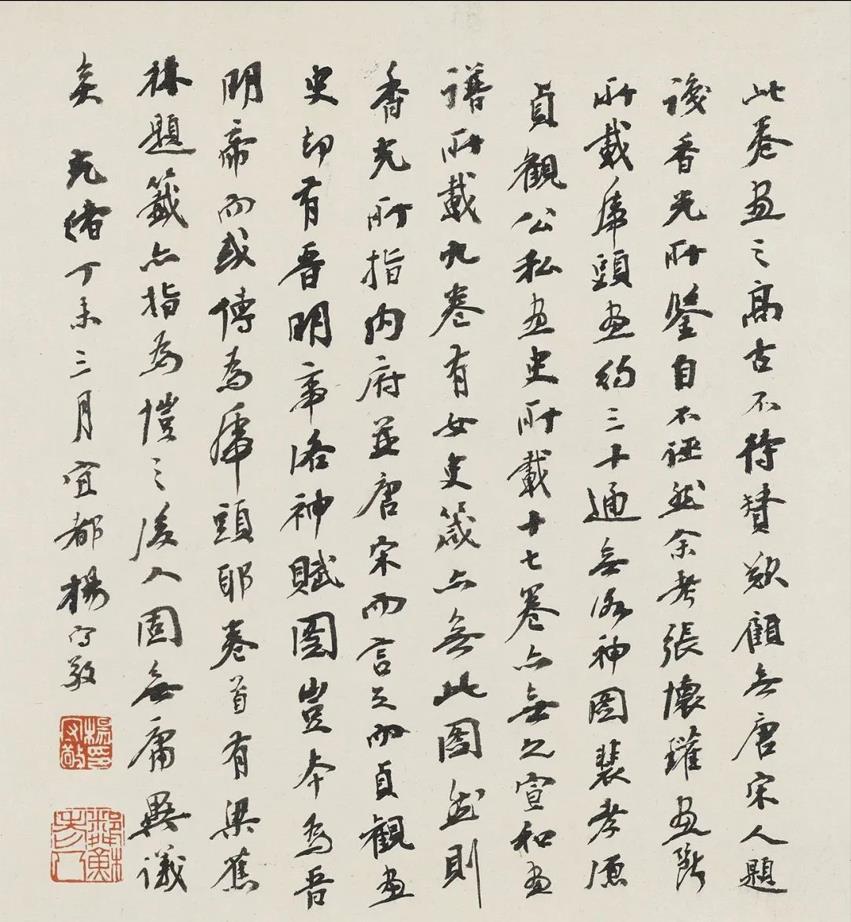 此卷画之高古不待赞歎顧無唐宋人題
後香光所鑒自不誣然余考張懷瓘画斷
所載虎頭画約三十通無洛神圖裴孝源
貞觀公私画史所載十七卷亦無之宣和画
譜所載九卷有女史箴亦無此圖然則
香光所指内府並唐宋而言之而貞觀画
史却有晋明帝洛神賦圖豈本為晋
明帝而或傳為虎頭耶卷首有梁蕉
林題籤亦指為愷之後人固無庸異議
矣 光緒丁未三月宜都楊守敬
楊守敬印